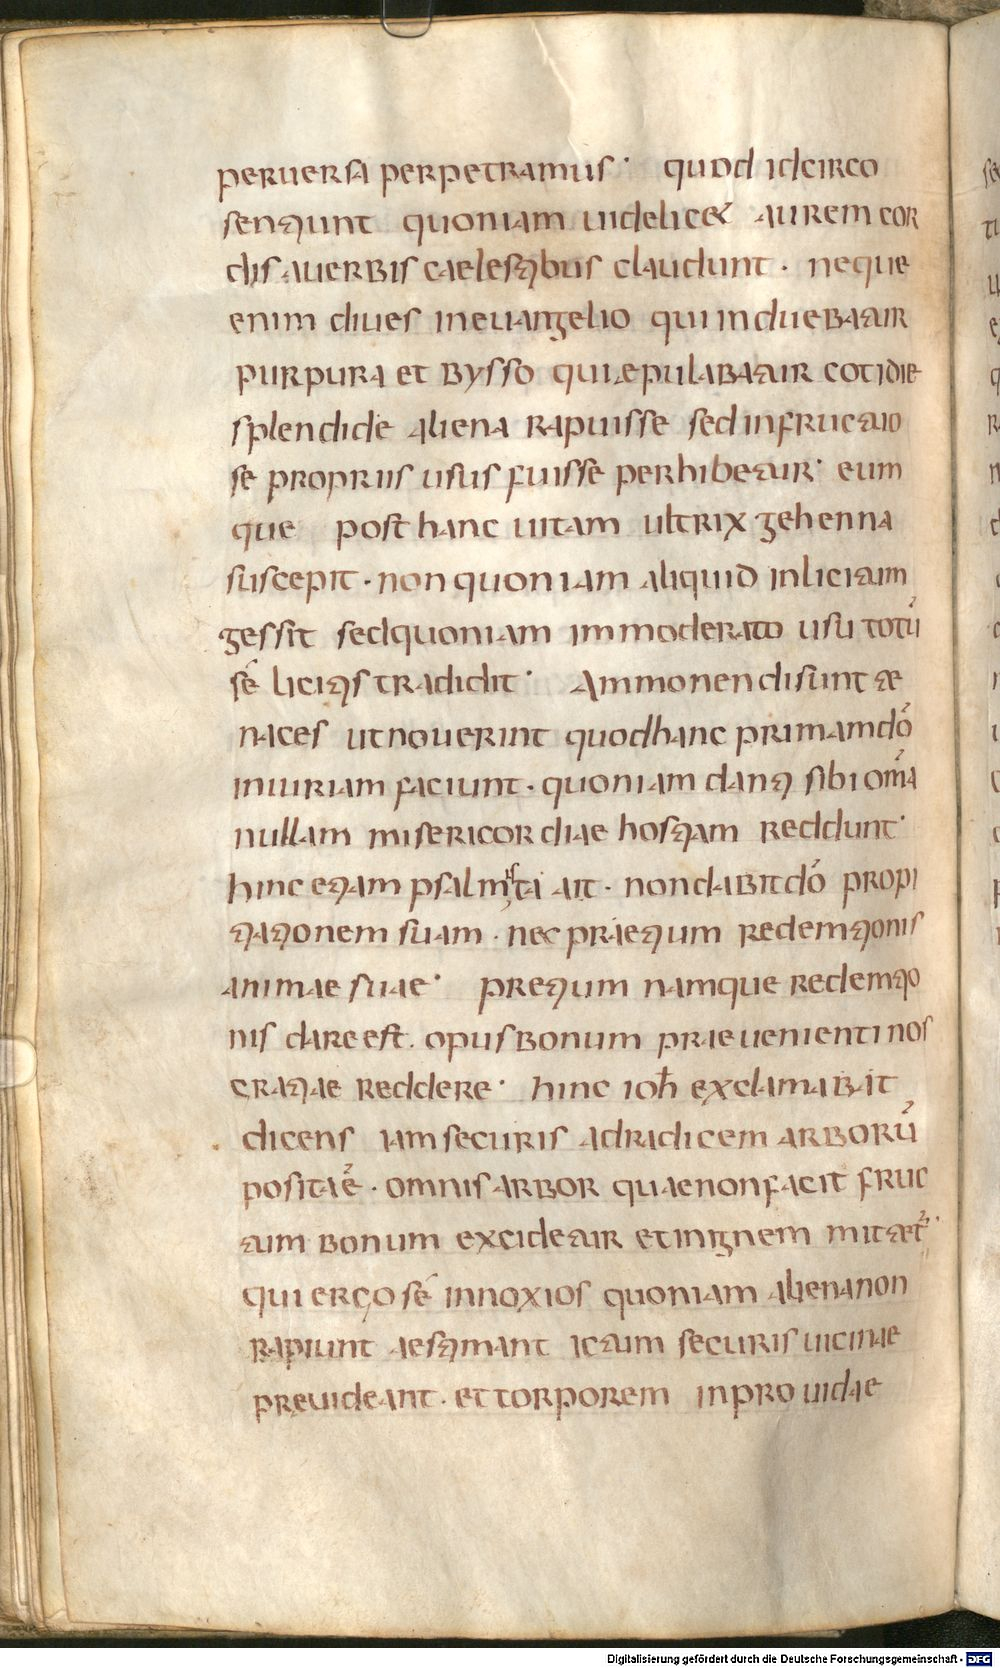 peruersa perpetramus· quod idcirco
sentiunt quoniam uidelicet aurem cor
dis auerbis caelestibus claudunt· neque
enim diues ineuangelio quiinduebatur
purpura et bysso quiepulabatur cotidie
splendide aliena rapuisse sed infructuo
se propriis usus fuisse perhibetur· eum
que post hanc uitam ultrix gehenna
suscepit· non quoniam aliquid inlicitum
gessit sedquoniam immoderato usu totū
sē licitis tradidit· Ammonendi sunt te
naces ut nouerint quodhanc primam dō
iniuriam faciunt· quoniam danti sibi om̄a
nullam misericordiae hostiam reddunt·
hinc etiam psalmista ait· non dabit dō propi
tiationem suam· nec praetium redemtionis
animae suae· pretium namque redemtio
nis dare est· opus bonum praeuenienti nos
gratiae reddere· hinc ioħ exclamabat
dicens iam securis adradicem arborū
posita ē· omnis arbor quae non facit fruc
tum bonum excidetur et inignem mittet̄·
qui ergo sē innoxios quoniam aliena non
rapiunt aestimant ictum securis uicinae
preuideant· et torporem inprouidae
Digitalisierung gefördert durch die Deutsche Forschungsgemeinschaft - DFG